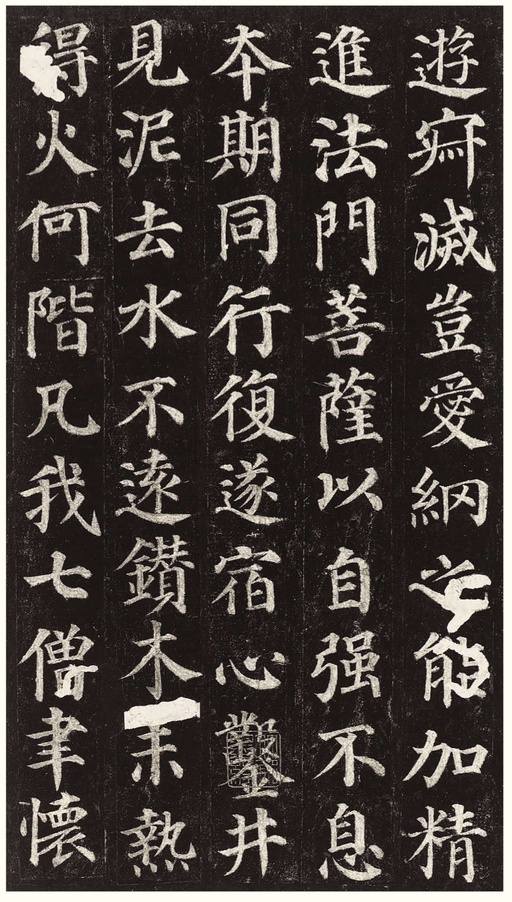 遊寂滅豈愛網之能加精
進法門菩薩以自强不息
夲期同行復遂宿心鑿井
見泥去水不遠鑽木未熱
得火何階凡我七僧聿懷